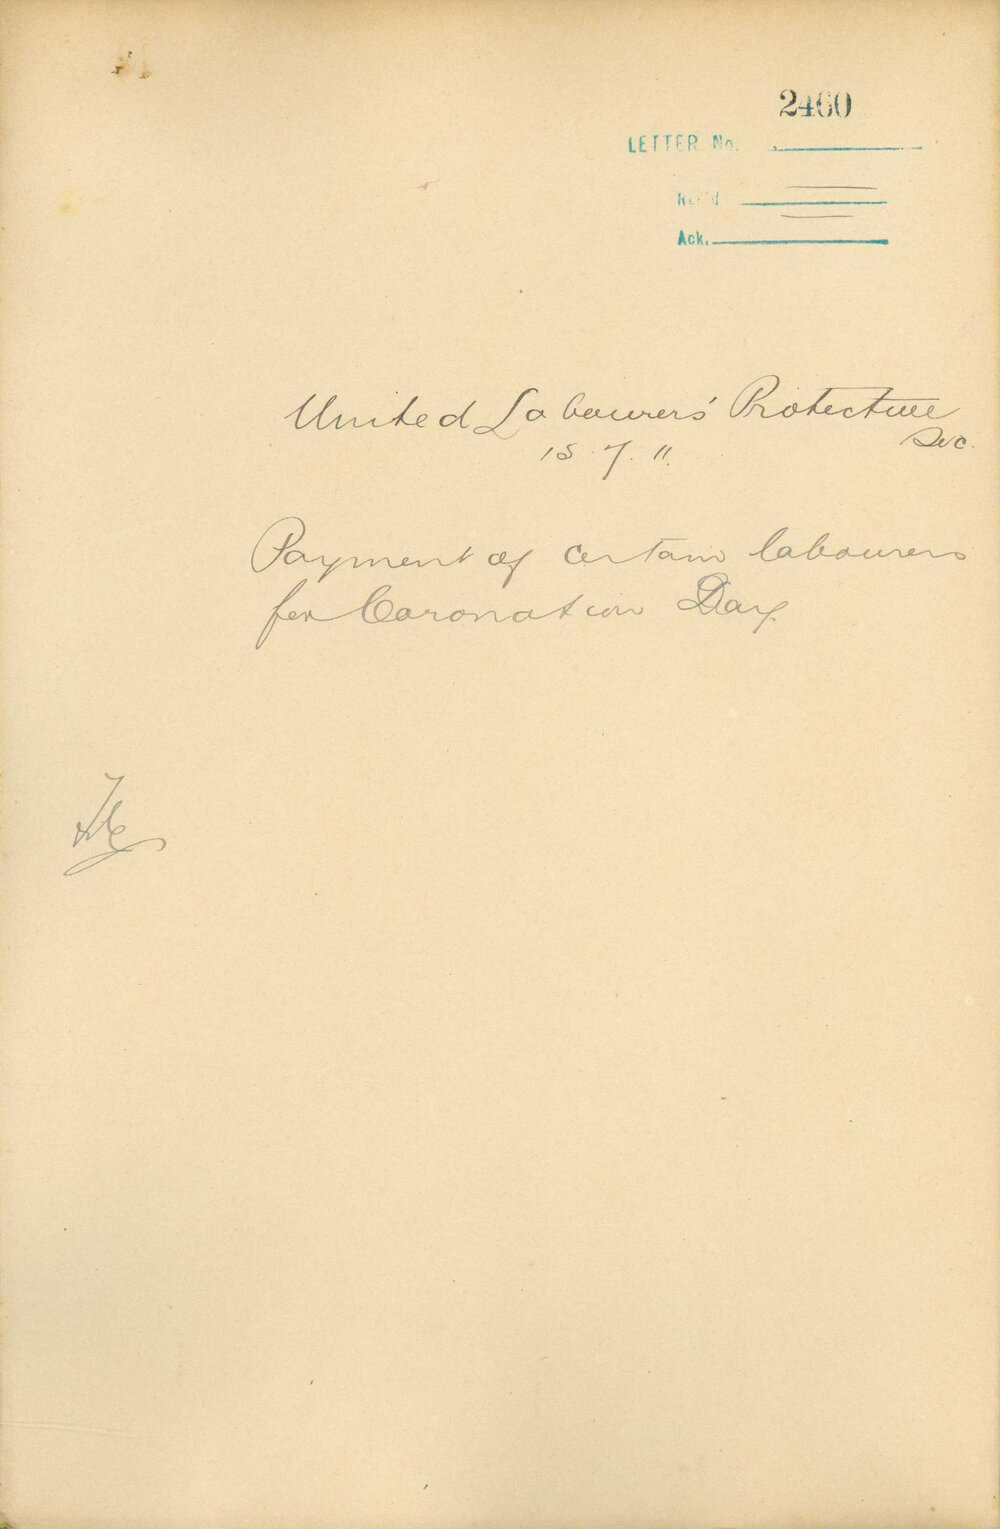 2460
LETTER No.
Rec'd
Ack.
United Labourers' Protective
Soc.
18.7.11.
Payment of certain labourers
for Coronation Day.